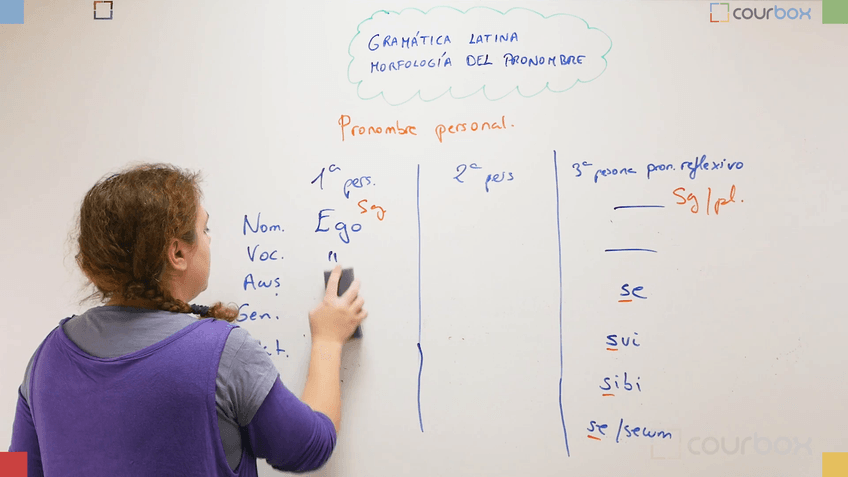 courbox
GRAMÁTICA LATINA
MORFOLOGÍA DEL PRONOMBRE
Pronombre personal.
1ª pers. 2ª pers 3ª pesona pron. reflexivo
Sg Sg/pl.
Nom. Ego
Voc. "
Acus se
Gen. sui
sibi
se/secum
courbox